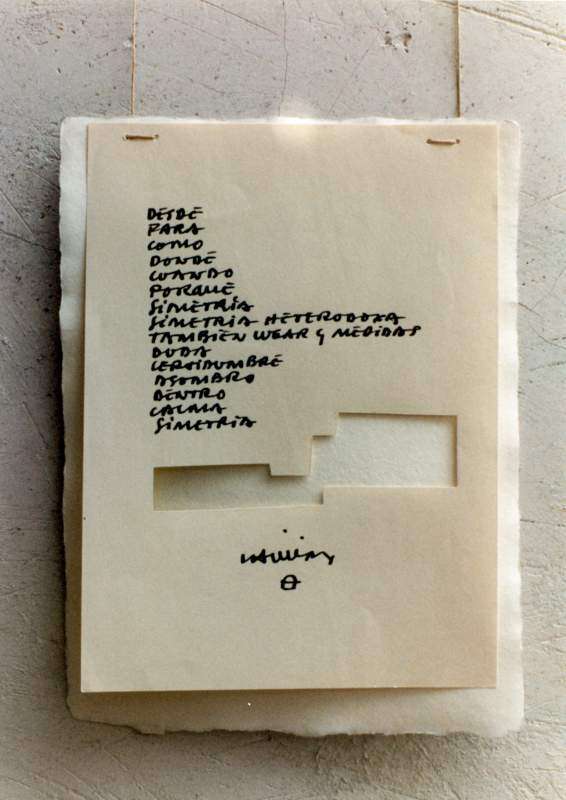 DESDE
PARA
COMO
DONDE
CUANDO
PORQUE
SIMETRÍA
SIMETRIA HETERODOXA
TAMBIÉN LUGAR Y MEDIDAS
DUDA
CERTIDUMBRE
ASOMBRO
DENTRO
CALMA
SIMETRÍA